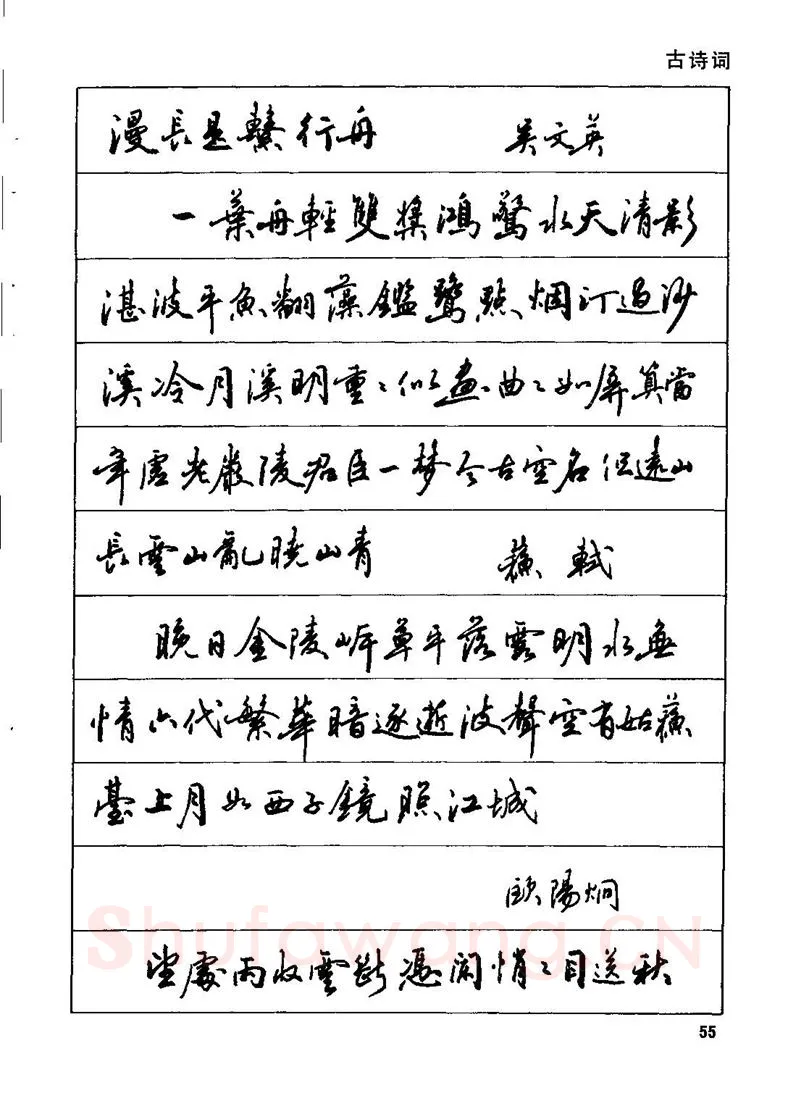 古诗词
漫長是繫行舟 吴文英
一葉舟輕雙槳鴻驚水天清影
湛波平魚翻藻鑑鷺點烟汀過沙
溪冷月溪明重〻似畫曲〻如屏算當
年虛老嚴陵君臣一夢今古空名但遠山
長雲山亂曉山青 蘇軾
晚日金陵岸草平落霞明水無
情六代繁華暗逐逝波聲空有姑蘇
臺上月如西子鏡照江城
歐陽炯
望處雨收雲斷憑闌悄〻目送秋
Shufawang.CN
55